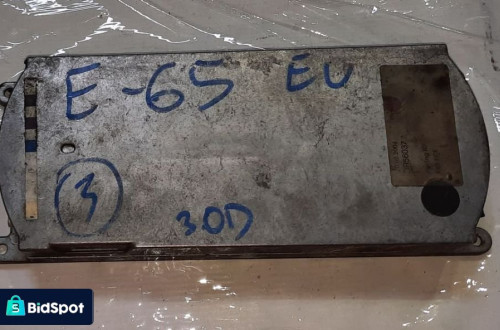 E-65 EU
3
3.0D
BidSpot